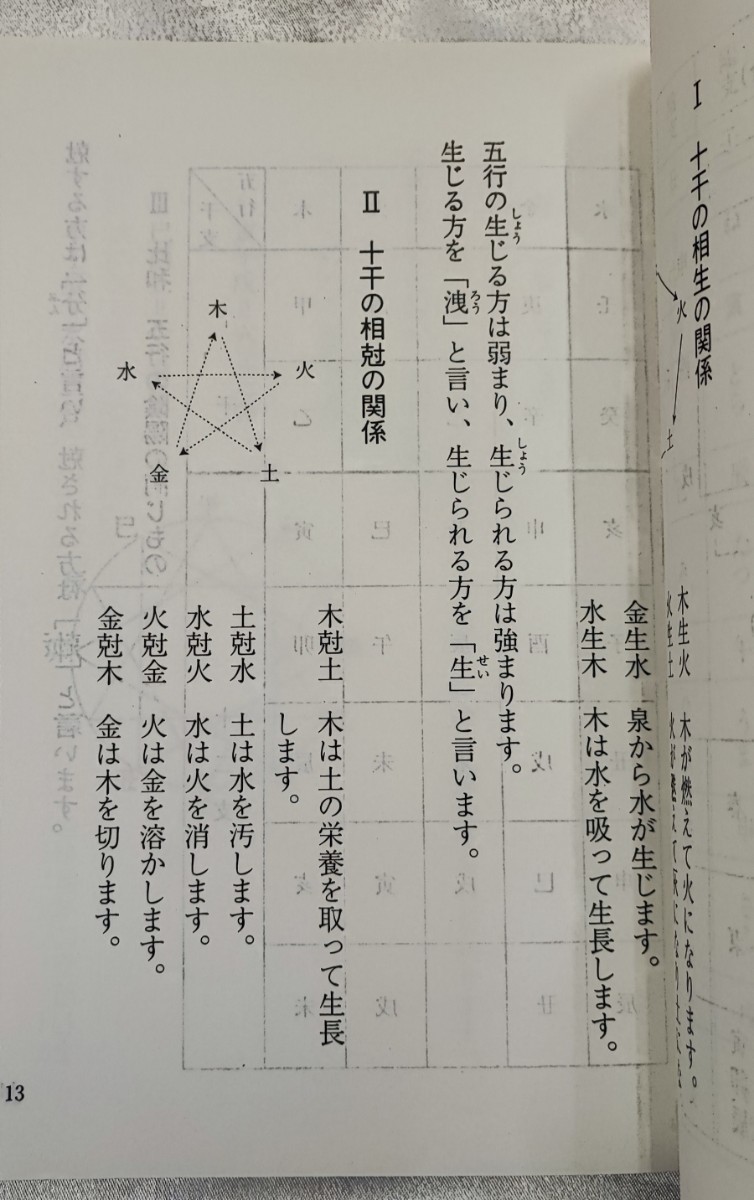 Ⅰ 十干の相生の関係
火
土
木生火 木が燃えて火になります。
火生土
金生水 泉から水が生じます。
水生木 木は水を吸って生長します。
五行の生じる方は弱まり、生じられる方は強まります。
しょう
しょう
生じる方を「洩」と言い、生じられる方を「生」と言います。
ろう
せい
Ⅱ 十干の相尅の関係
木
火
土
金
水
木尅土 木は土の栄養を取って生長
します。
土尅水 土は水を汚します。
水尅火 水は火を消します。
火尅金 火は金を溶かします。
金尅木 金は木を切ります。
13